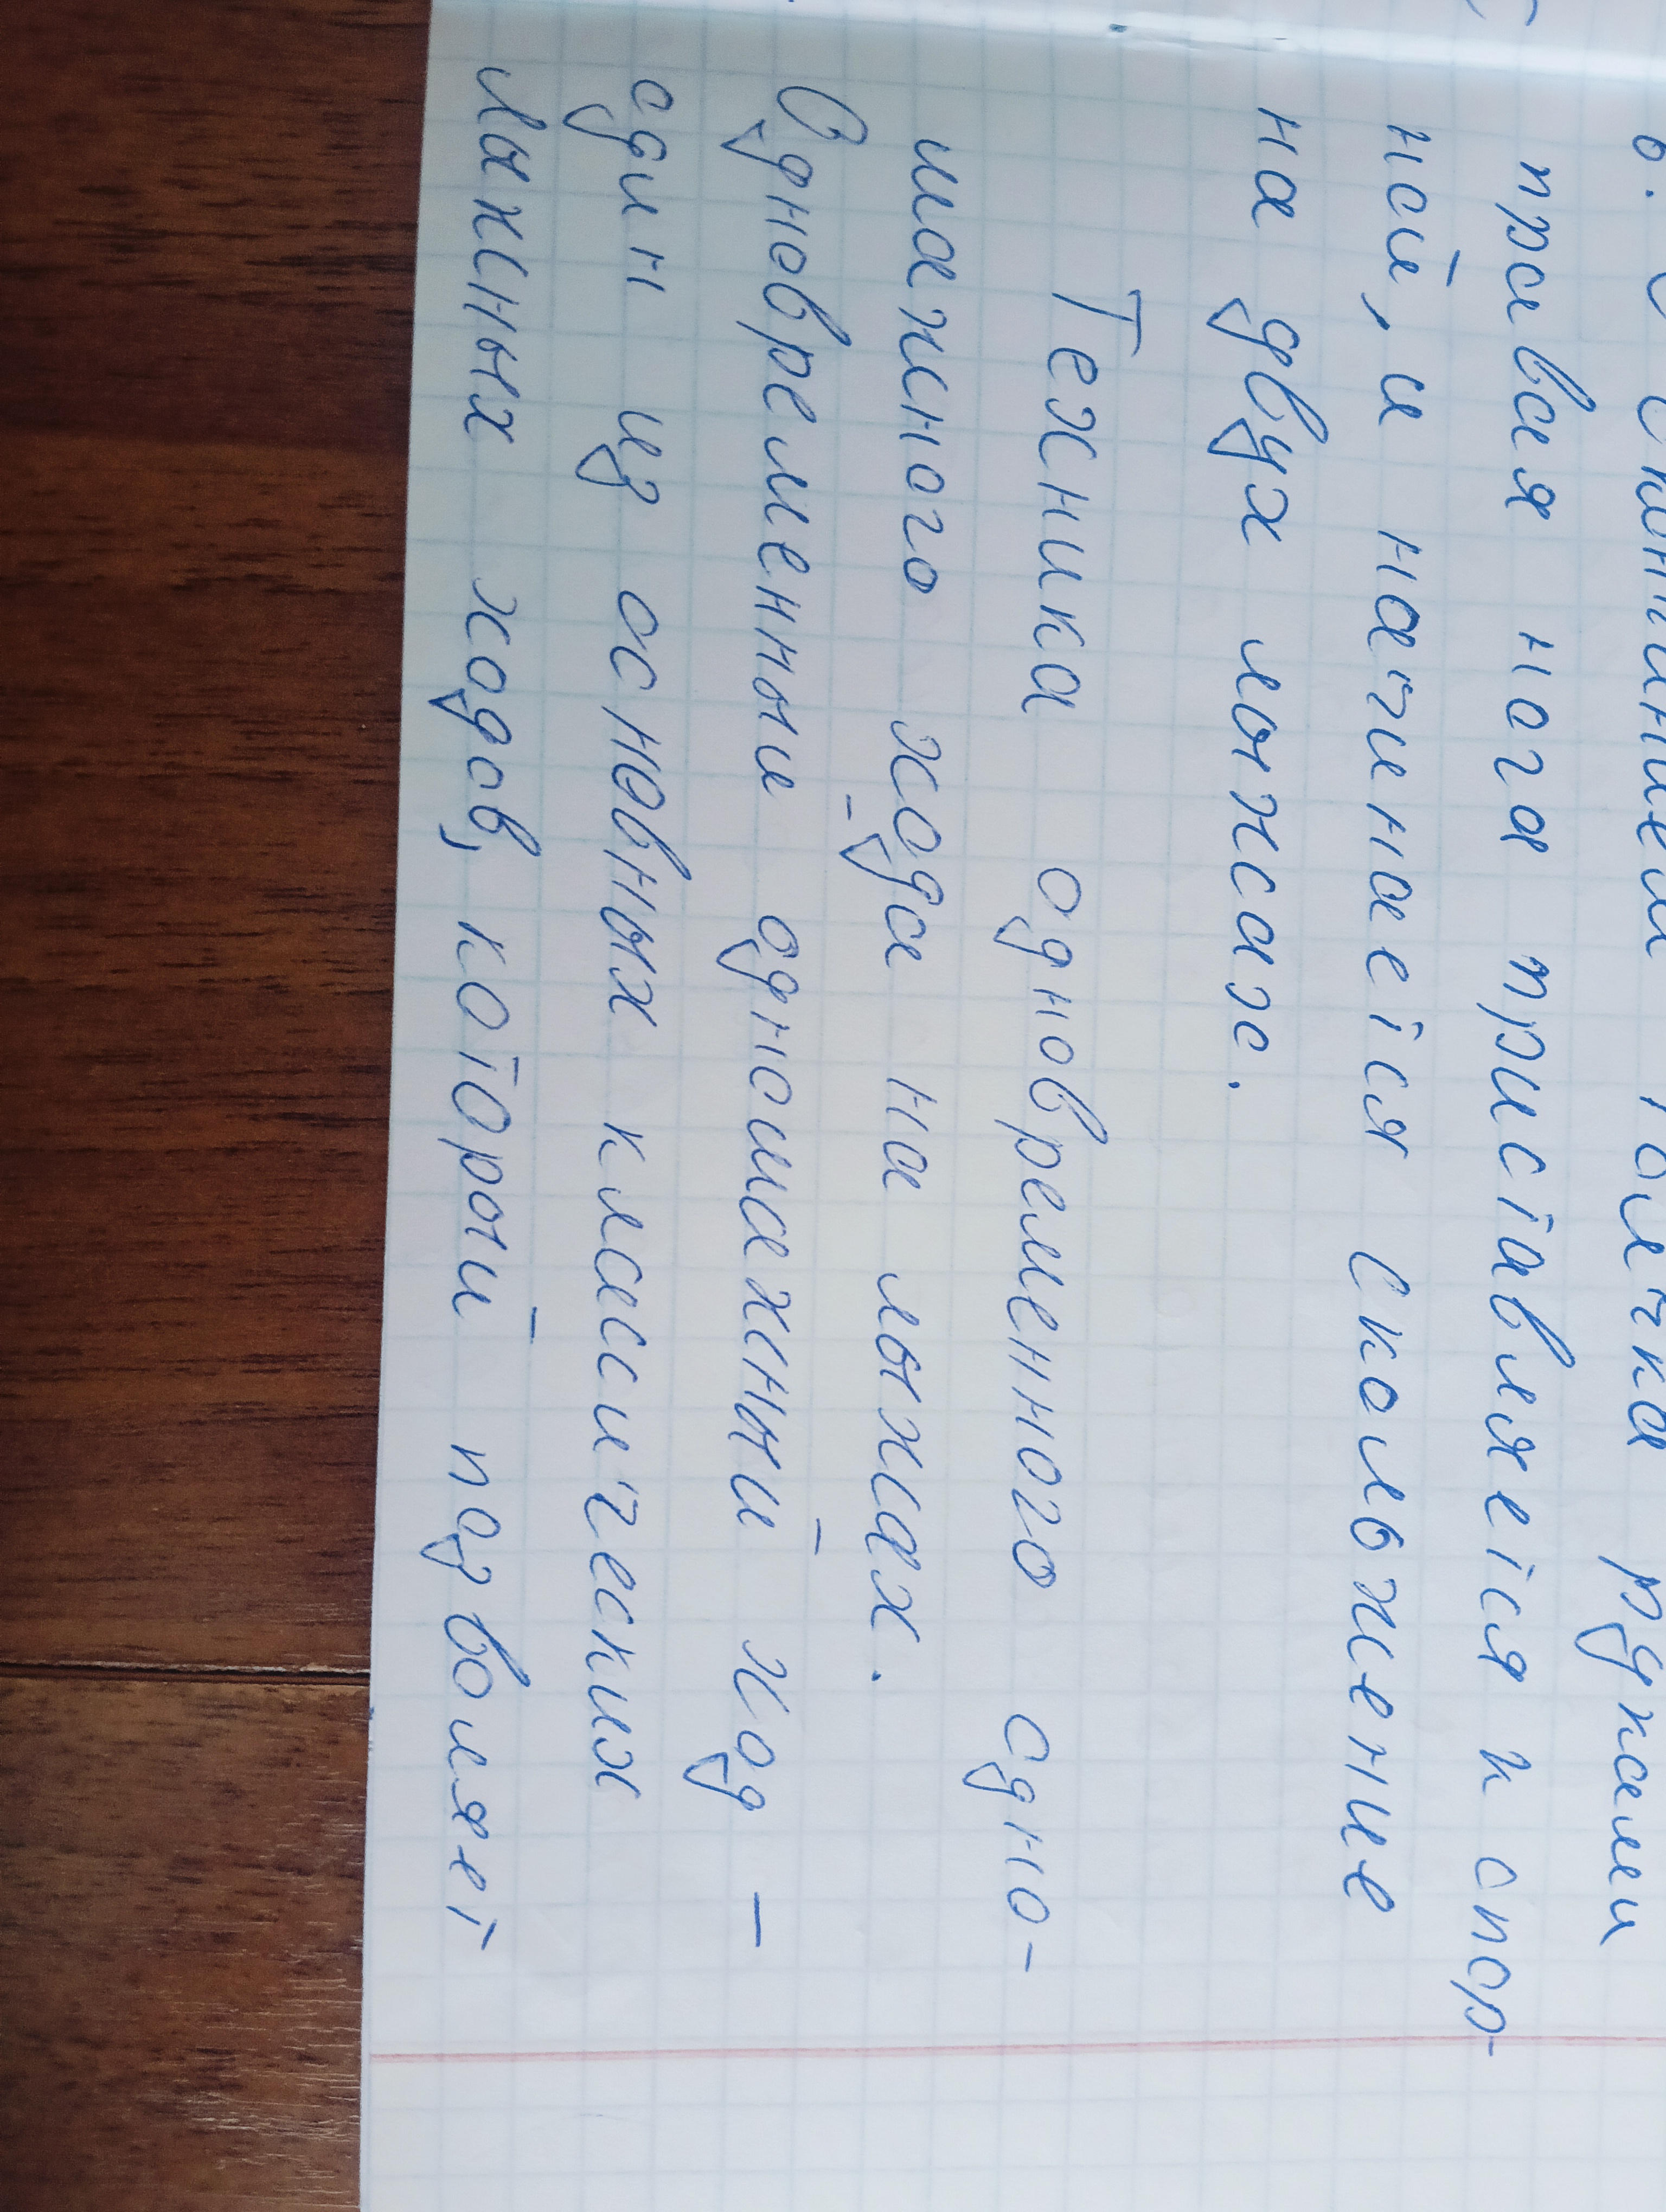 6. С окончанием толчка руками
правая нога приставляется к опор-
ной, и начинается скольжение
на двух лыжах.
Техника одновременного одно-
шажного хода на лыжах.
Одновременный одношажный ход –
один из основных классических
лыжных ходов, который позволяет